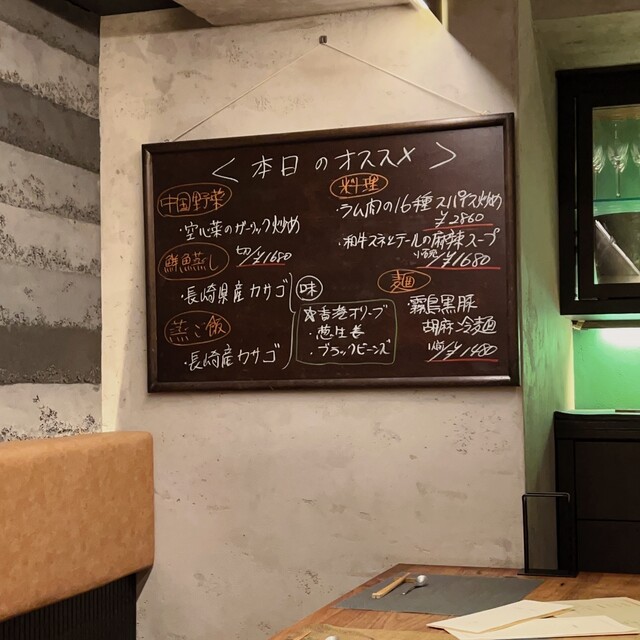 < 本日のオススメ >
中国野菜
・空心菜のガーリック炒め
¥1650
鮮魚蒸し
・長崎県産カサゴ
蒸ご飯
・長崎産カサゴ
味
★香港オリーブ
・葱生姜
・ブラックビーンズ
料理
・ラム肉の16種スパイス炒め
¥2860
・和牛スネとテールの麻辣スープ
小碗/¥1680
麺
霧島黒豚
胡麻冷麺
¥1480